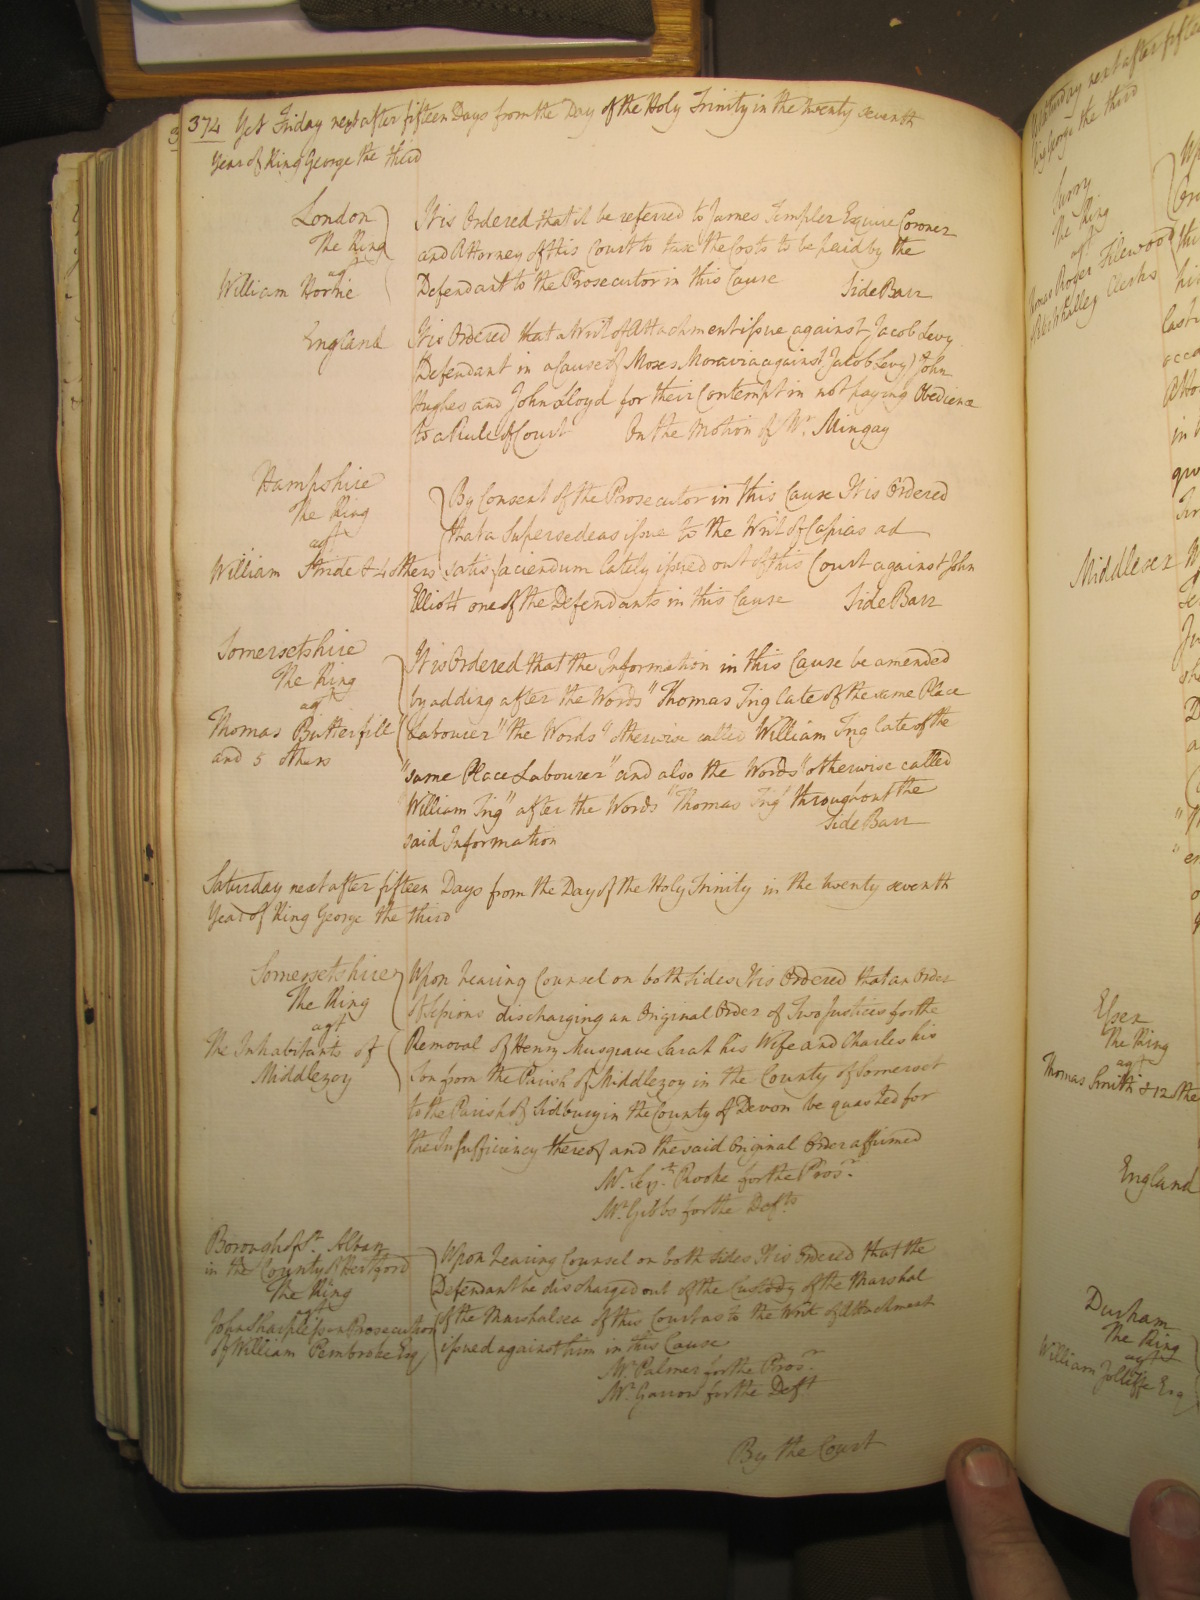 374 Yet Friday next after fifteen Days from the Day of the Holy Trinity in the twenty seventh
Year of King George the third
London
The King
agt
William Horne
It is Ordered that it be referred to James Templer Esquire Coroner
and Attorney of this Court to taxe the Costs to be paid by the
Defendant to the Prosecutor in this Cause Side Barr
England
It is Ordered that a Writ of Attachment issue against Jacob Levy
Defendant in a Cause of Moses Moravia against Jacob Levy) John
Hughes and John Lloyd for their Contempt in not paying Obedience
to a Rule of Court On the Motion of Mr. Mingay
Hampshire
The King
agt
William Stride & 4 others
By Consent of the Prosecutor in this Cause It is Ordered
that a Supersedeas issue to the Writ of Capias ad
satisfaciendum lately issued out of this Court against John
Elliott one of the Defendants in this Cause Side Barr
Somersetshire
The King
agt
Thomas Butterfill
and 5 others
It is Ordered that the Information in this Cause be amended
by adding after the Words "Thomas Ing late of the same Place
Labourer" the Words "otherwise called William Ing late of the
"same Place Labourer" and also the Words "otherwise called
William Ing" after the Words "Thomas Ing" throughout the
said Information Side Barr
Saturday next after fifteen Days from the Day of the Holy Trinity in the twenty seventh
Year of King George the third
Somersetshire
The King
agt
The Inhabitants of
Middlezoy
Upon hearing Counsel on both sides It is Ordered that an Order
of Sessions discharging an Original Order of Two Justices for the
Removal of Henry Musgrave Sarah his Wife and Charles his
Son from the Parish of Middlezoy in the County of Somerset
to the Parish of Sidbury in the County of Devon be quashed for
the Insufficiency thereof and the said Original Order affirmed
Mr. Serjt. Rooke for the Prosr.
Mr. Gibbs for the Defts
Borough of St. Alban
in the County of Hertford
The King
agt
John Sharpless on Prosecution
of William Pembroke Esq
Upon hearing Counsel on both sides It is Ordered that the
Defendant be discharged out of the Custody of the Marshal
of the Marshalsea of this Court as to the Writ of Attachment
issued against him in this Cause
Mr. Palmer for the Prosr.
Mr. Garrow for the Deft
By the Court
Saturday next after fifteen
King George the third
Surry
The King
agt
Roger Filewood
Clerks
Middlesex
Essex
The King
agt
Thomas Smith & 12 others
England
Durham
The King
agt
William Jolliffe Esq